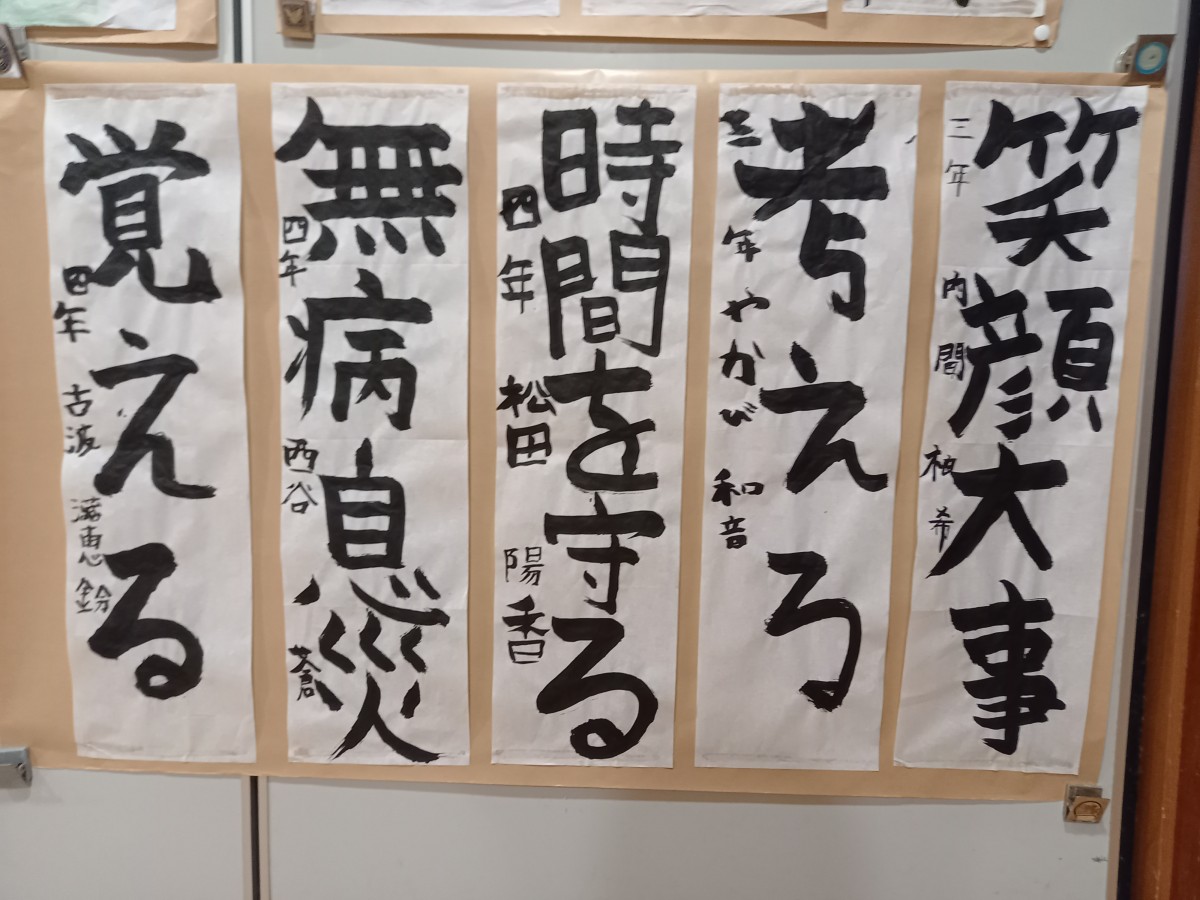 笑顔大事
三年 内間 柚希
考える
三年 やかび 和音
時間を守る
四年 松田 陽香
無病息災
四年 西谷 蒼
覚える
四年 古波 恵鈴